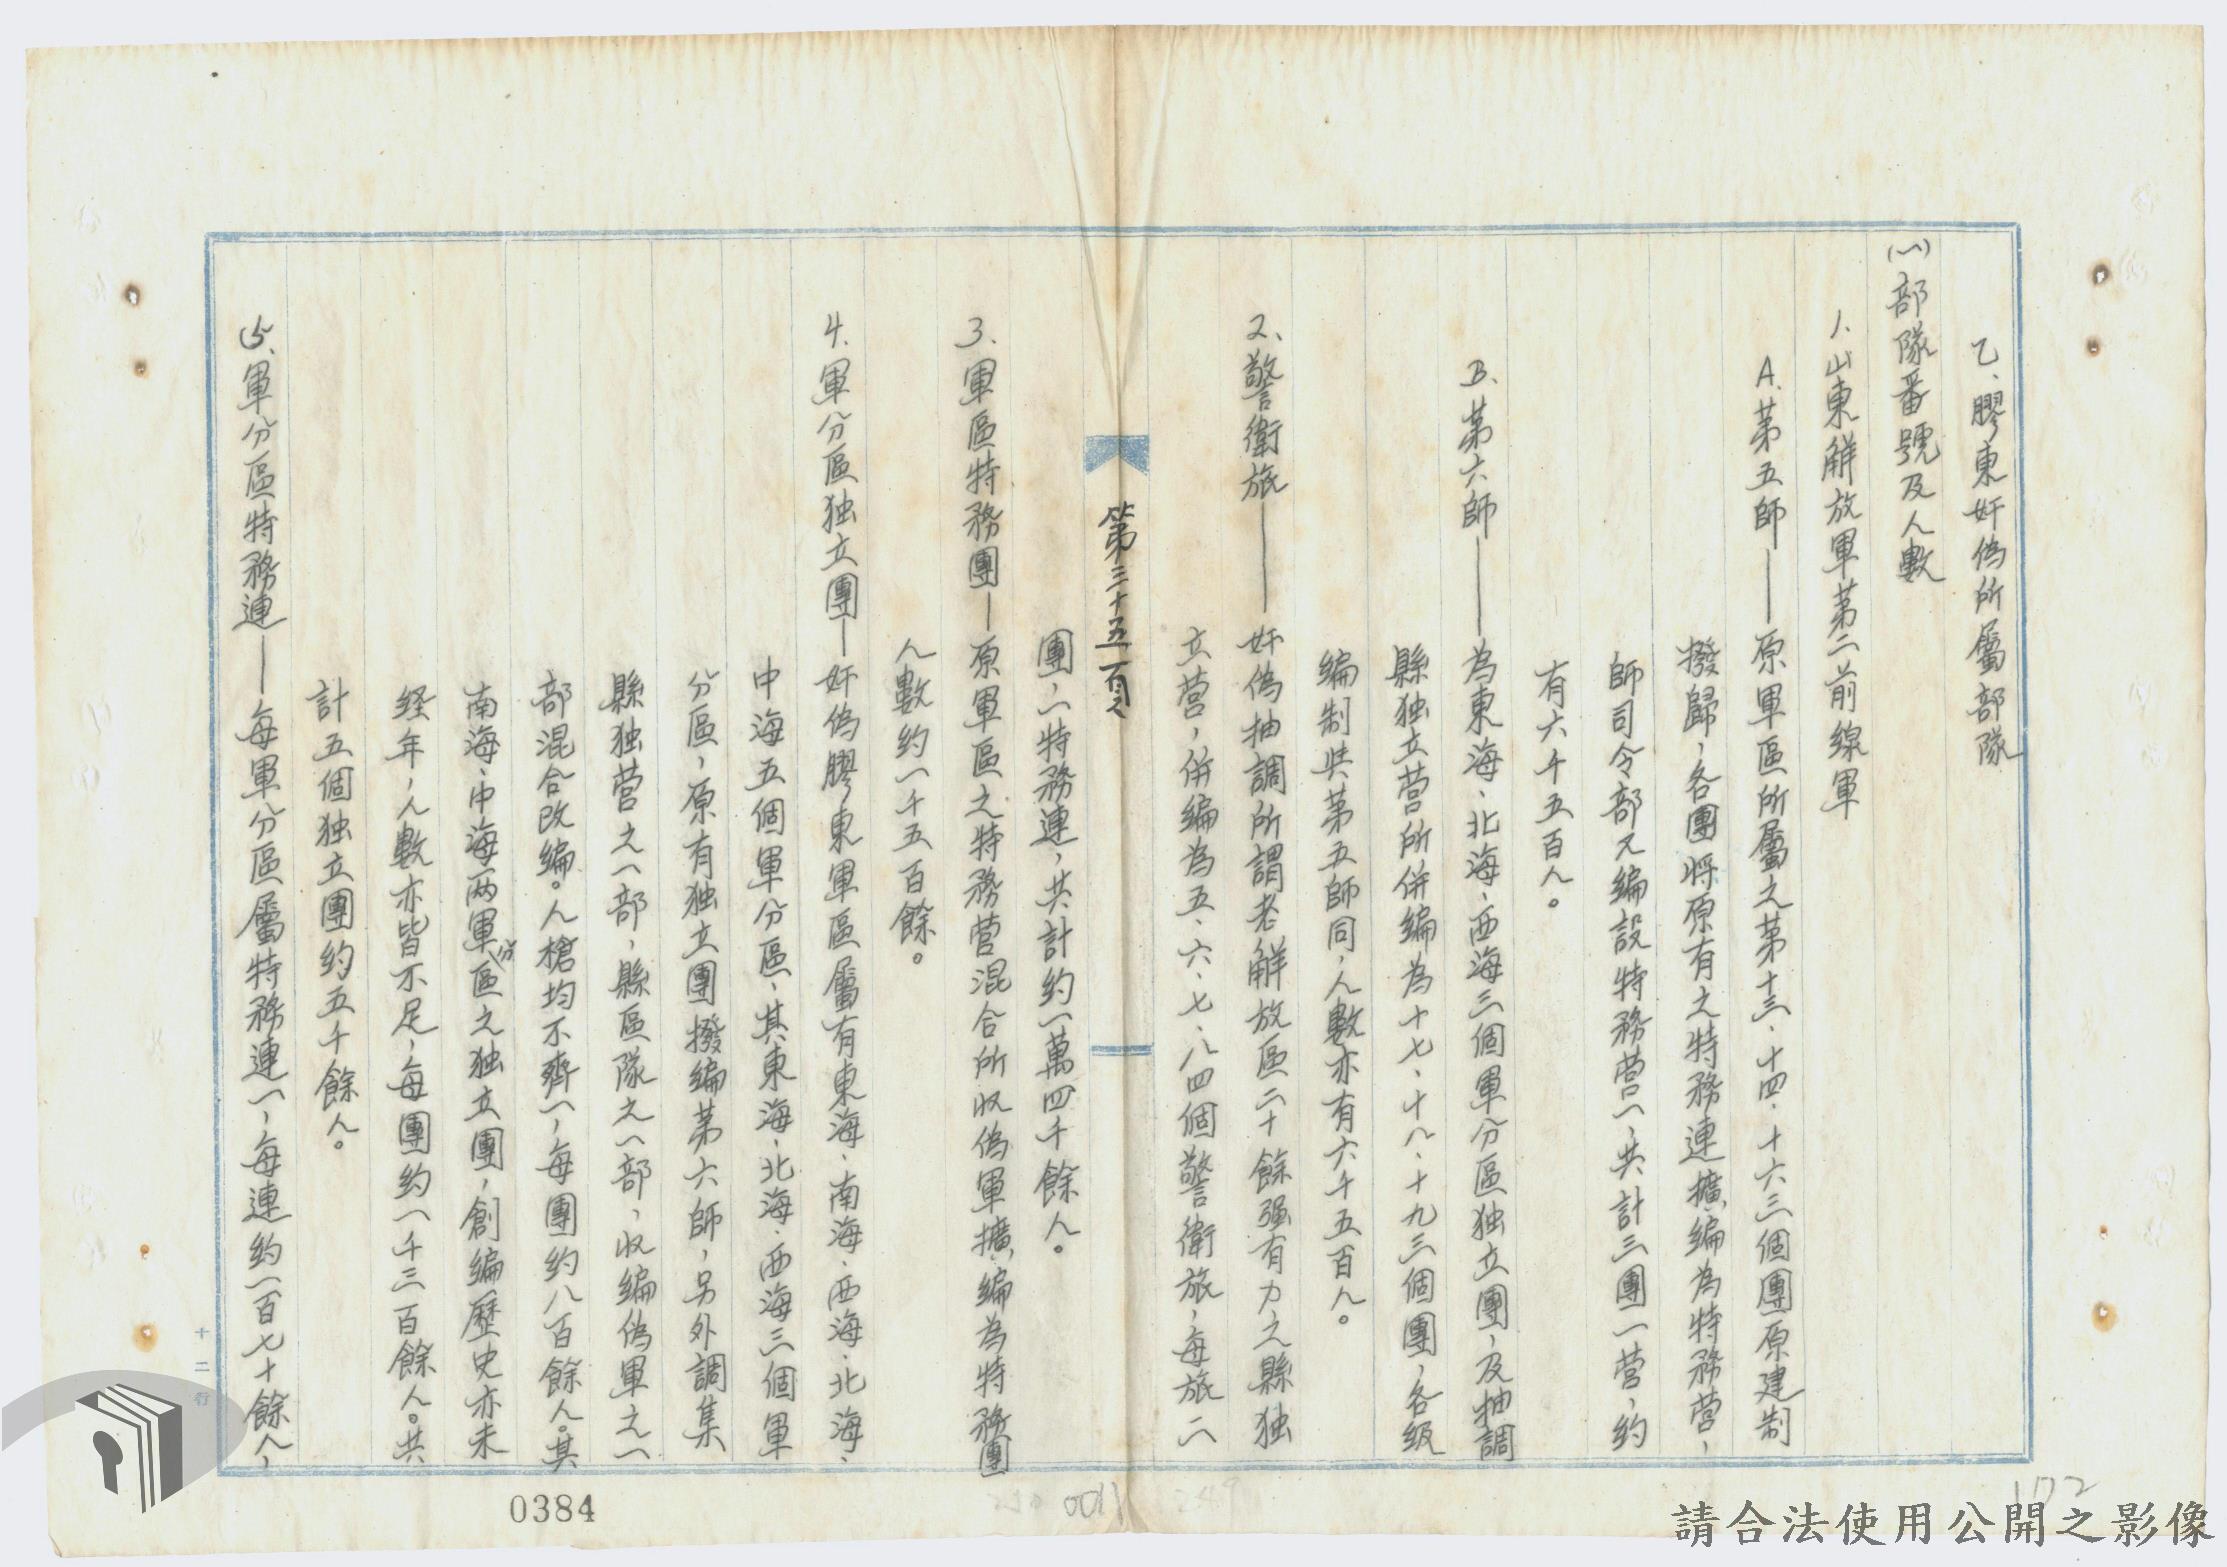 乙、膠東奸偽所屬部隊
(一)部隊番號及人數
1.山東解放軍第二前線軍
A.第五師——原軍區所屬之第十三、十四、十六三個團原建制
撥歸，各團將原有之特務連擴編為特務營，
師司令部又編設特務營一，共計三團一營，約
有六千五百人。
B.第六師——為東海、北海、西海三個軍分區独立團，及抽調
縣独立营所併編為十七、十八、十九三個團，各級
編制與第五師同，人數亦有六千五百人。
2、警衛旅——奸偽抽調所謂老解放區二十餘强有力之縣独
立营，併編為五、六、七、八四個警衛旅，每旅二
第三十五頁
團，一特務連，共計約一萬四千餘人。
3.軍區特務團—原軍區之特務营混合所收偽軍擴編為特務團
人數約一千五百餘。
4.軍分區独立團—奸偽膠東軍區屬有東海、南海、西海、北海、
中海五個軍分區，其東海、北海、西海三個軍
分區，原有独立團撥編第六師，另外調集
縣独营之一部，縣區隊之一部，收編偽軍之一
部混合改編。人槍均不齊一，每團約八百餘人。其
南海、中海两軍分區之独立團，創編歷史亦未
经年，人數亦皆不足，每團約一千三百餘人。共
計五個独立團約五千餘人。
5.軍分區特務連—每軍分區屬特務連一，每連約一百七十餘人，
十二行
0384
0011
249
172
請合法使用公開之影像